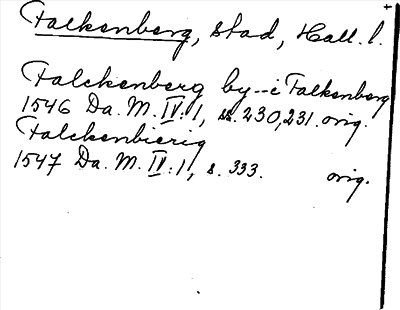 Falkenberg, stad, Hall. l.
Falckenberg by--i Falkenberg
1546 Da. M. IV:1, ss. 230,231. orig.
Falckenbierig
1547 Da. M. IV:1, s. 333. orig.